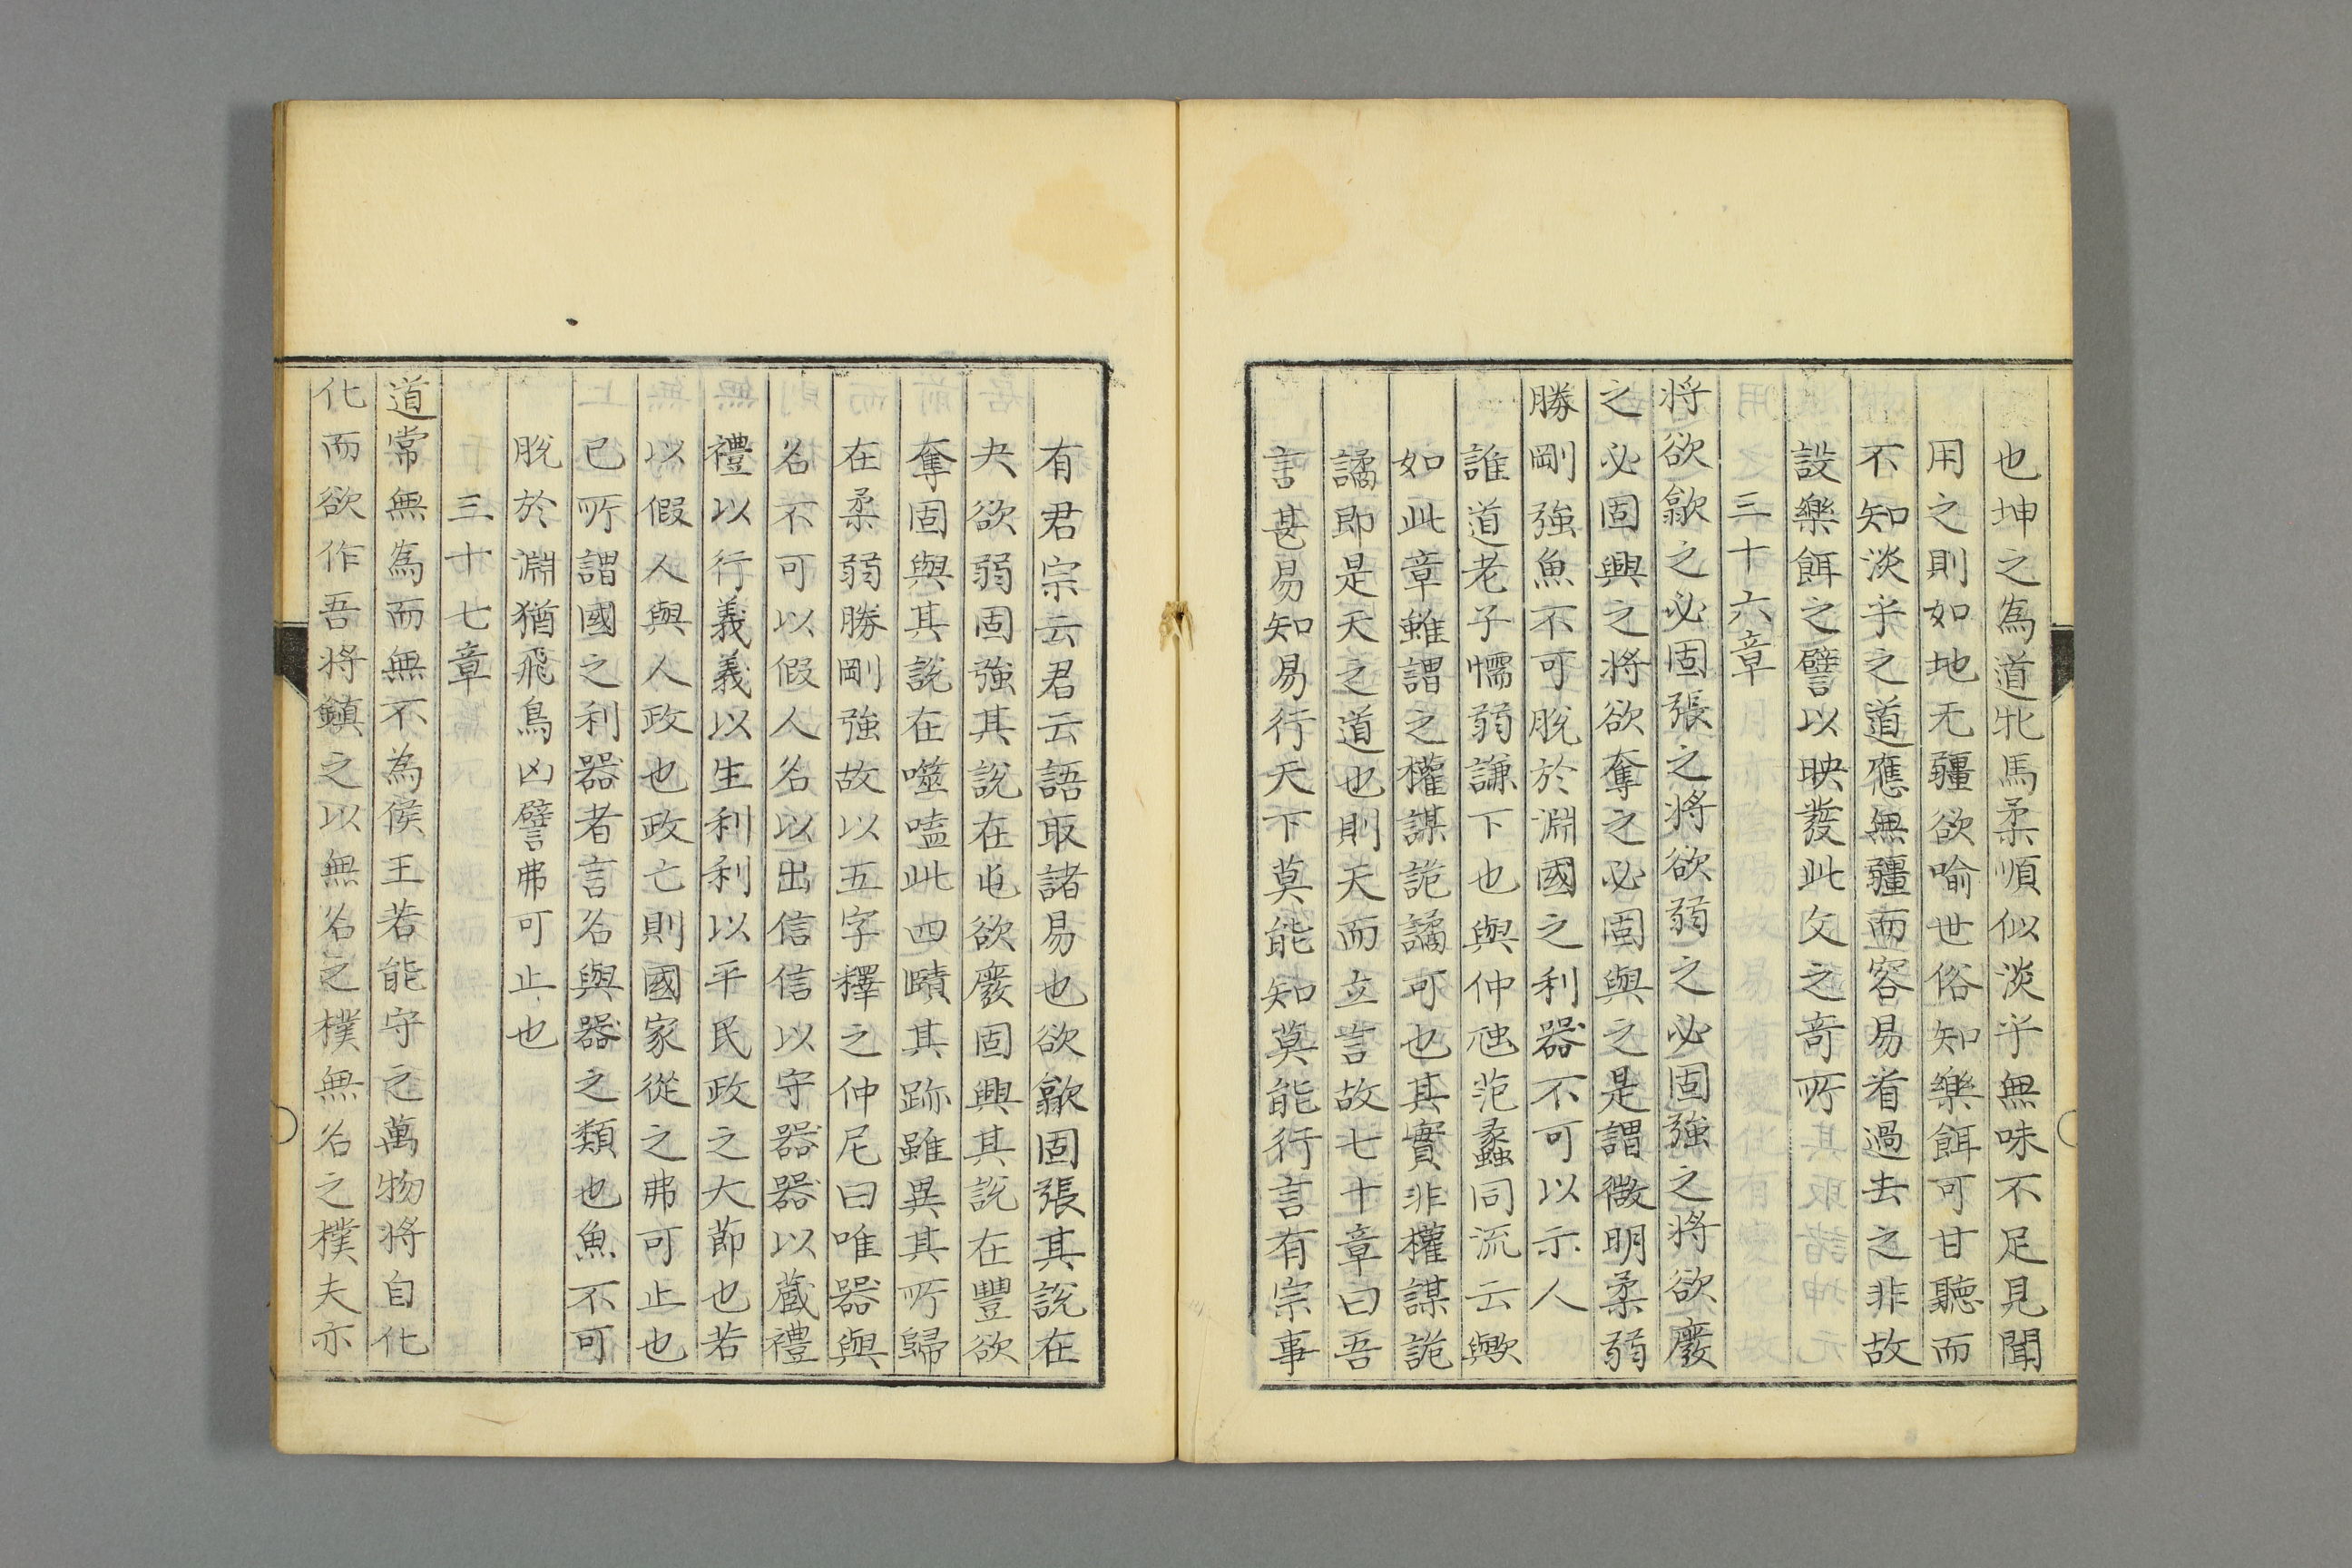 也坤之為道牝馬柔順似淡乎無味不足見聞
用之則如地无疆欲喻世俗知樂餌可甘聽而
不知淡乎之道應無疆而容易看過去之非故
設樂餌之譬以映發此文之奇所
三十六章
將欲歙之必固張之將欲弱之必固強之將欲廢
之必固興之將欲奪之必固與之是謂微明柔弱
勝剛強魚不可脫於淵國之利器不可以示人
誰道老子懦弱謙下也與仲虺范蠡同流云歟
如此章雖謂之權謀詭譎可也其實非權謀詭
譎即是天之道也則天而立言故七十章曰吾
言甚易知易行天下莫能知莫能行言有宗事
有君宗云君云語取諸易也欲歙固張其說在
夬欲弱固強其說在屯欲廢固興其說在豐欲
奪固與其說在噬嗑此四賾其跡雖異其所歸
在柔弱勝剛強故以五字釋之仲尼曰唯器與
名不可以假人名以出信信以守器器以藏禮
禮以行義義以生利利以平民政之大節也若
以假人與人政也政亡則國家從之弗可止也
已所謂國之利器者言名與器之類也魚不可
脫於淵猶飛鳥凶譬弗可止也
三十七章
道常無為而無不為侯王若能守之萬物將自化
化而欲作吾將鎮之以無名之樸無名之樸夫亦